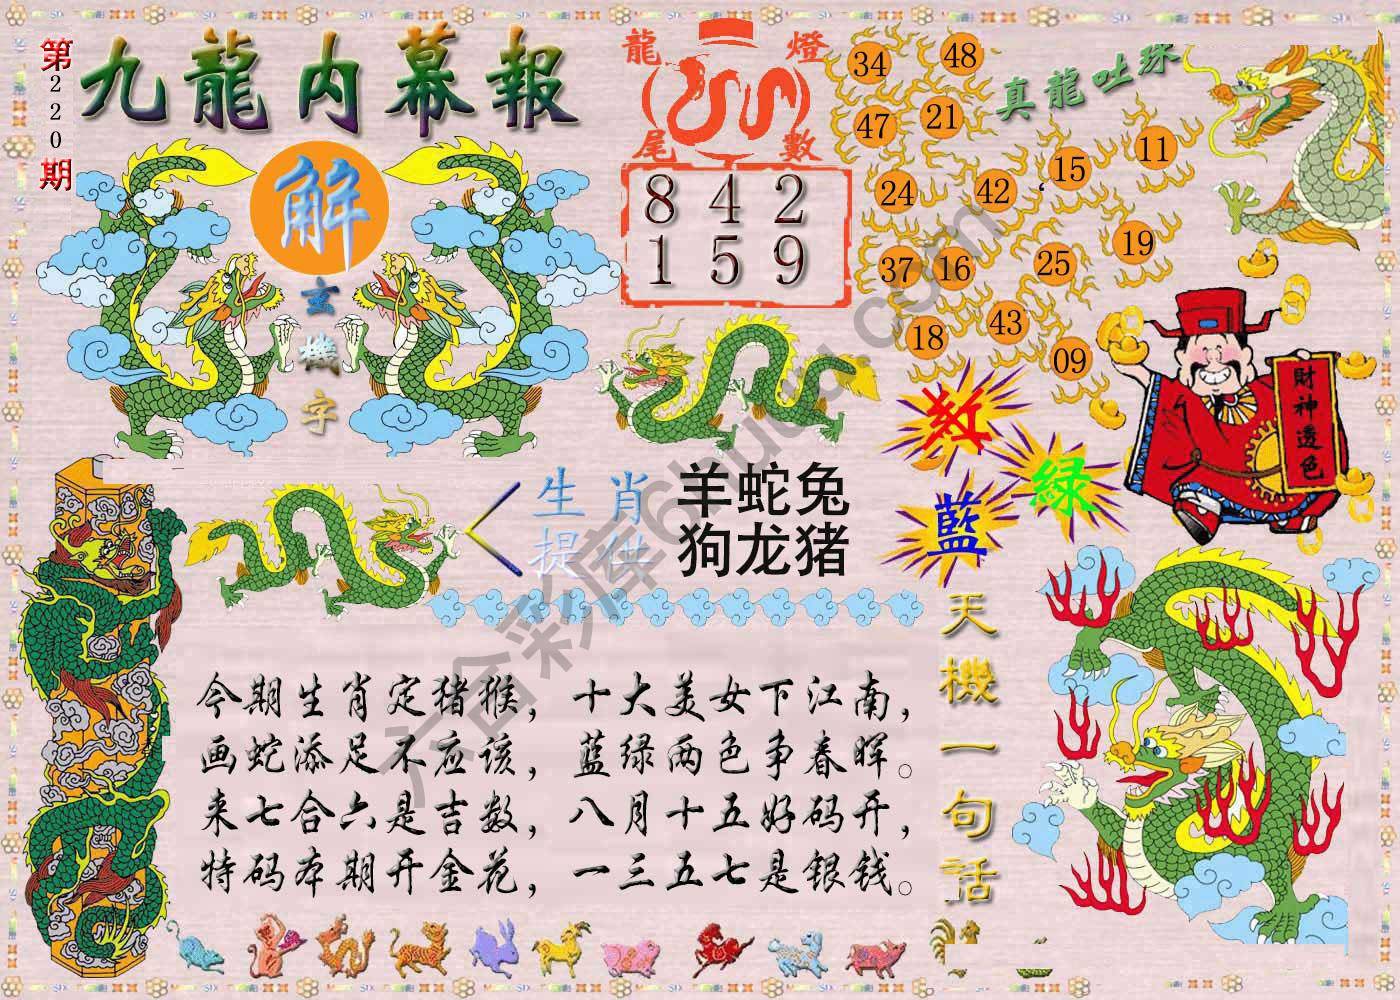 第220期
九龍内幕報
解
玄機字
龍燈
尾數
8 4 2
1 5 9
真龍吐珠
34 48
47 21
24 42 15 11
37 16 25 19
18 43 09
財神透色
紅
綠
藍
生肖
提供
羊蛇兔
狗龙猪
天機一句話
今期生肖定猪猴，十大美女下江南，
画蛇添足不应该，蓝绿两色争春晖。
来七合六是吉数，八月十五好码开，
特码本期开金花，一三五七是银钱。
六合彩库6huc.com